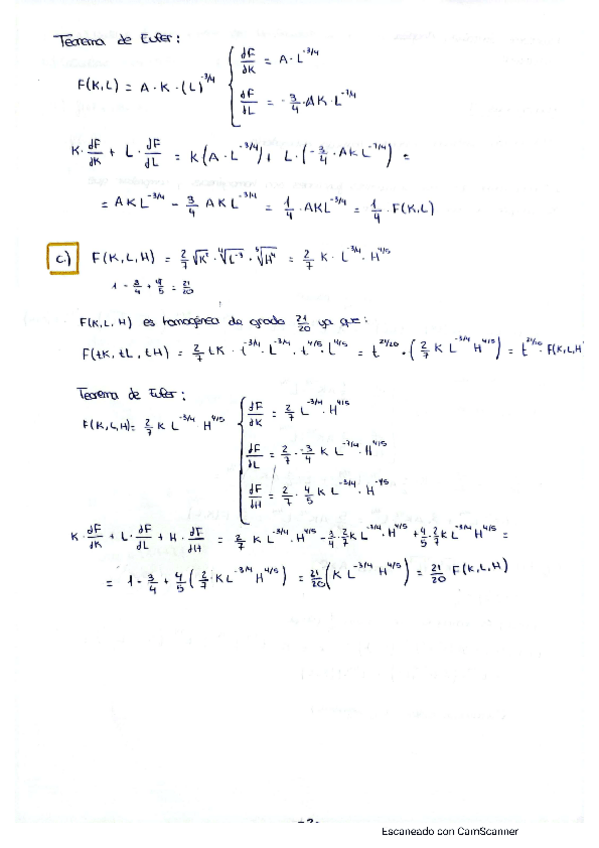 Teorema de Euler:
F(K,L) = A·K·(L)^-3/4 { dF/dK = A·L^-3/4
dF/dL = -3/4·AK·L^-7/4
K·dF/dK + L·dF/dL = K(A·L^-3/4), L·(-3/4·AKL^-7/4) =
= AKL^-3/4 - 3/4 AKL^-3/4 = 1/4·AKL^-3/4 = 1/4·F(K,L)
c.) F(K,L,H) = 2/7 √K²·⁴√L^-3·⁵√H⁴ = 2/7 K·L^-3/4·H^4/5
1 - 3/4 + 4/5 = 21/20
F(K,L,H) es homogénea de grado 21/20 ya que:
F(tK, tL, tH) = 2/7 tK·t^-3/4·L^-3/4·t^4/5·L^4/5 = t^21/20·(2/7 K L^-3/4 H^4/5) = t^21/20·F(K,L,H
Teorema de Euler:
F(K,L,H) = 2/7 K L^-3/4 H^4/5 { dF/dK = 2/7 L^-3/4·H^4/5
dF/dL = 2/7·-3/4 K L^-7/4·H^4/5
dF/dH = 2/7·4/5 K L^-3/4·H^-1/5
K·dF/dK + L·dF/dL + H·dF/dH = 2/7 K L^-3/4·H^4/5 - 3/4·2/7 K L^-3/4·H^4/5 + 4/5·2/7 K L^-3/4 H^4/5 =
= 1 - 3/4 + 4/5 (2/7·K L^-3/4 H^4/5) = 21/20 (K L^-3/4 H^4/5) = 21/20 F(K,L,H)
Escaneado con CamScanner